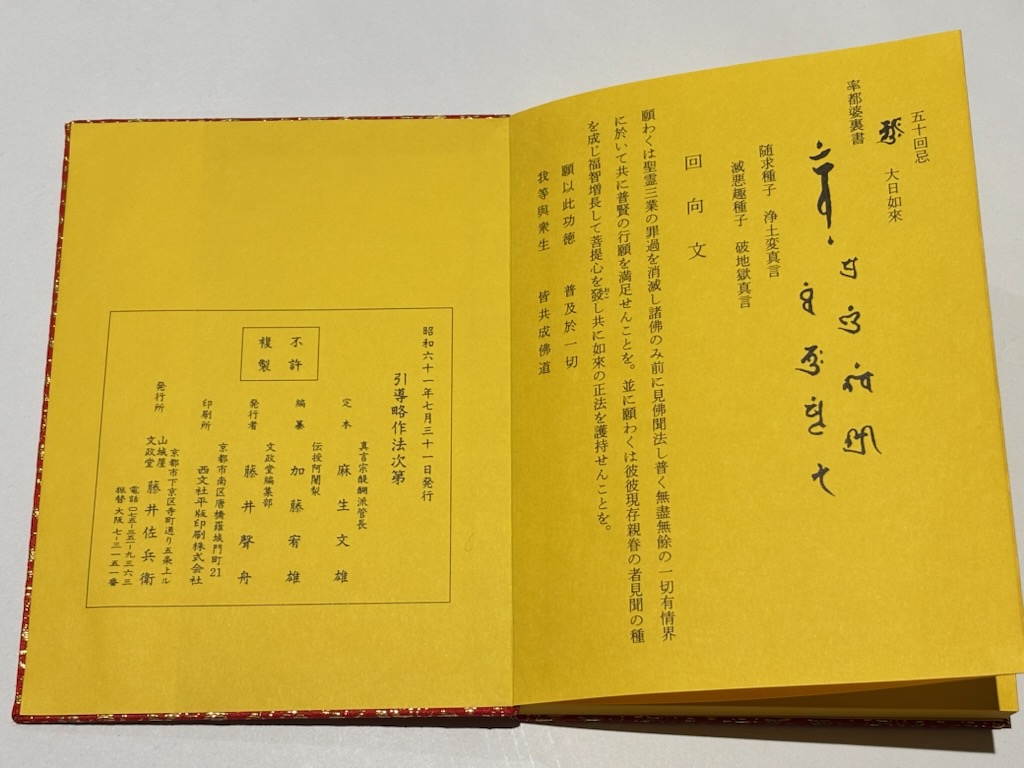 五十回忌
大日如來
率都婆裏書
随求種子　浄土変真言
滅悪趣種子　破地獄真言
回向文
願わくは聖霊三業の罪過を消滅し諸佛のみ前に見佛聞法し普く無盡無餘の一切有情界
に於いて共に普賢の行願を満足せんことを。並に願わくは彼彼現存親眷の者見聞の種
を成じ福智増長して菩提心を發し共に如来の正法を護持せんことを。
おこ
願以此功徳　普及於一切
我等與衆生　皆共成佛道
昭和六十一年七月三十一日発行
引導略作法次第
不許
複製
定本　真言宗醍醐派管長
麻生文雄
編纂　伝授阿闍梨
加藤宥雄
文政堂編集部
発行者　藤井聲舟
京都市南区唐橋羅城門町21
印刷所　西文社平版印刷株式会社
京都市下京区寺町通り五条上ル
発行所　山城屋文政堂　藤井佐兵衛
電話〇七五-三五一-九三六三
振替大阪七-三一五一番